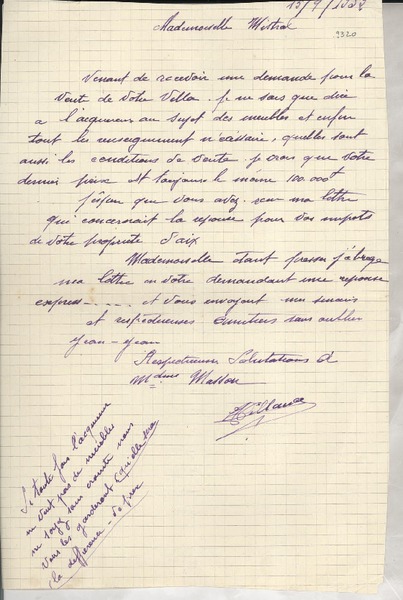 15/7/1932
9320
Mademoiselle Mistral
Venant de recevoir une demande pour la
Vente de Votre Villa. je ne sais que dire
a l'acquereur au sujet des meubles et enfin
tout les renseignement nécessaire, quelles sont
aussi les conditions de Vente. je crois que Votre
dernier prix est toujours le même 100.000f
J'espere que Vous avez recu ma lettre
qui concernait la reponse pour vos impots
de Votre propriete d'aix
Mademoiselle étant presser j'abrege
ma lettre en Votre demandant une reponse
express----- et Vous envoyant mes sincere
et respectueuses Amitiers sans oublier
Jean-Jean
Respectueuses Salutations d
Mdme Massou
Si toute fois l'acquereur
ne veut pas de meubles
ne soyez sans crainte nous
Vous les garderont
la difference - de prix